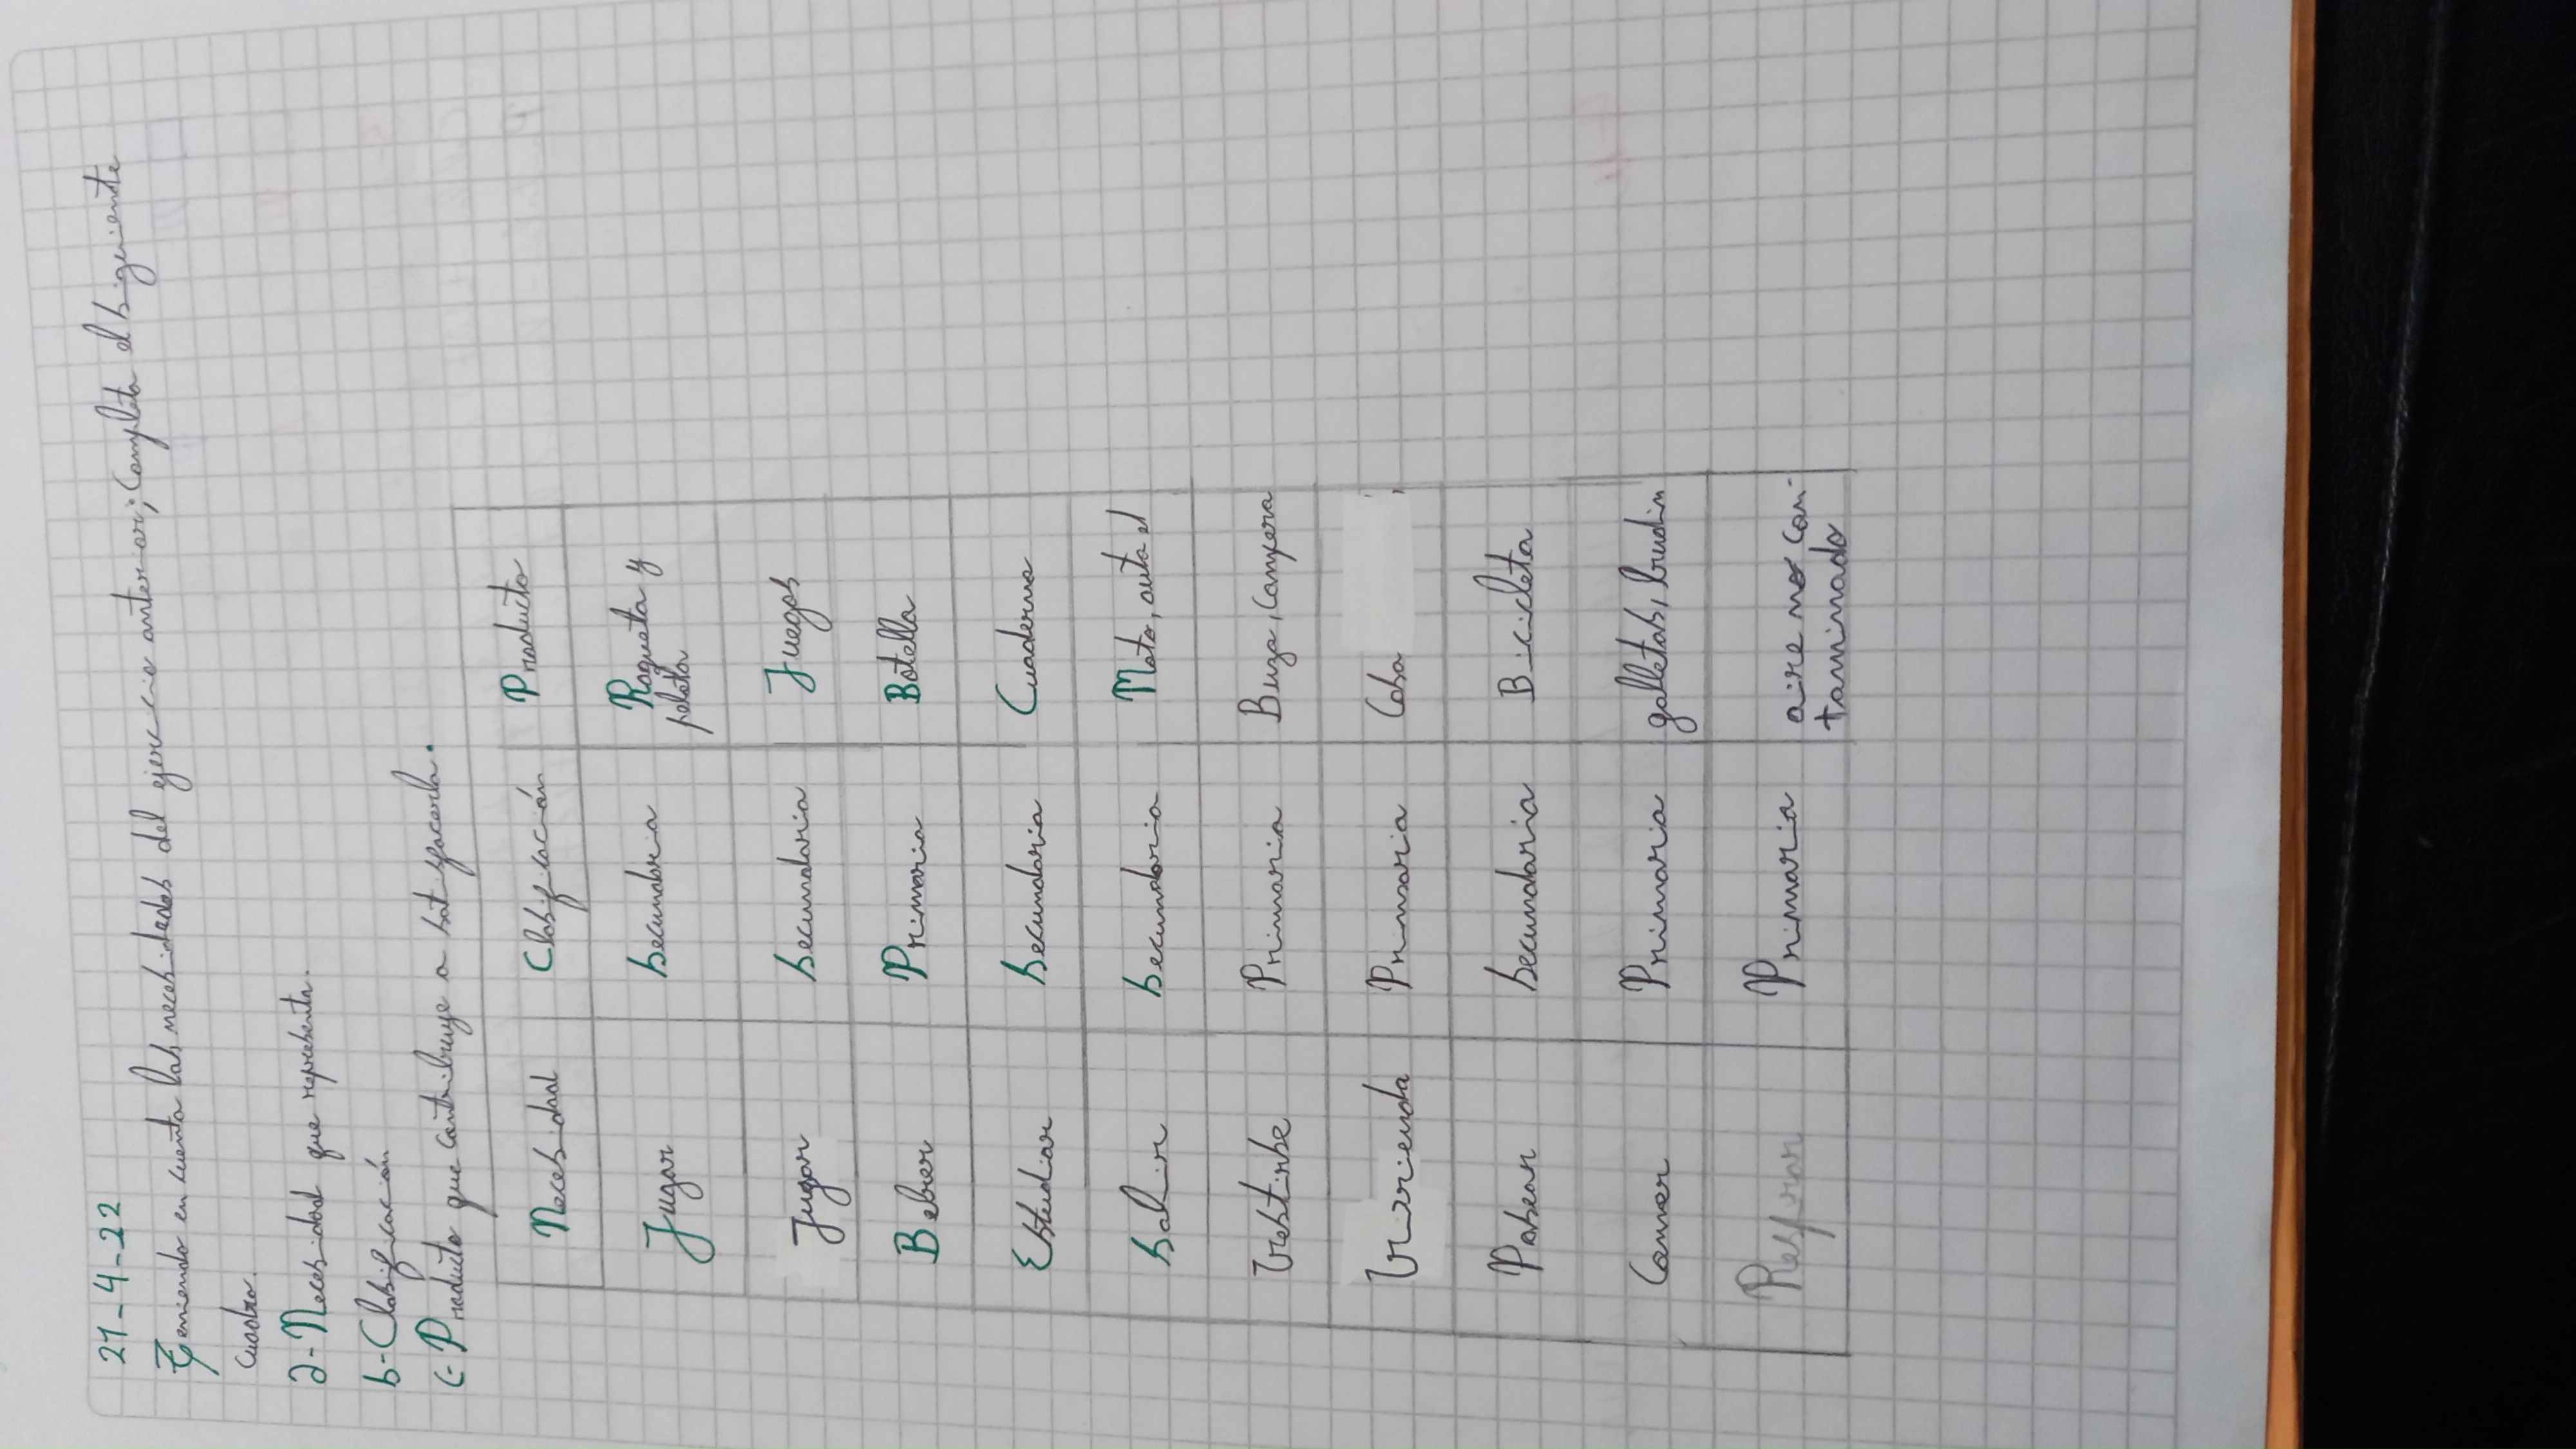 21-4-22
Teniendo en cuenta las necesidades del ejercicio anterior; Completa el siguiente
cuadro.
a- Necesidad que representa.
b- Clasificación
c- Producto que contribuye a satisfacerla.
Necesidad Clasificación Producto
Jugar secundaria Raqueta y
pelota
Jugar secundaria Juegos
Beber Primaria Botella
Estudiar secundaria Cuaderno
salir secundaria Moto, auto
Vestirse Primaria Buzo, Campera
Vivienda Primaria Casa
Pasear secundaria Bicicleta
Comer Primaria galletas, budin
Respirar Primaria aire no con-
taminado